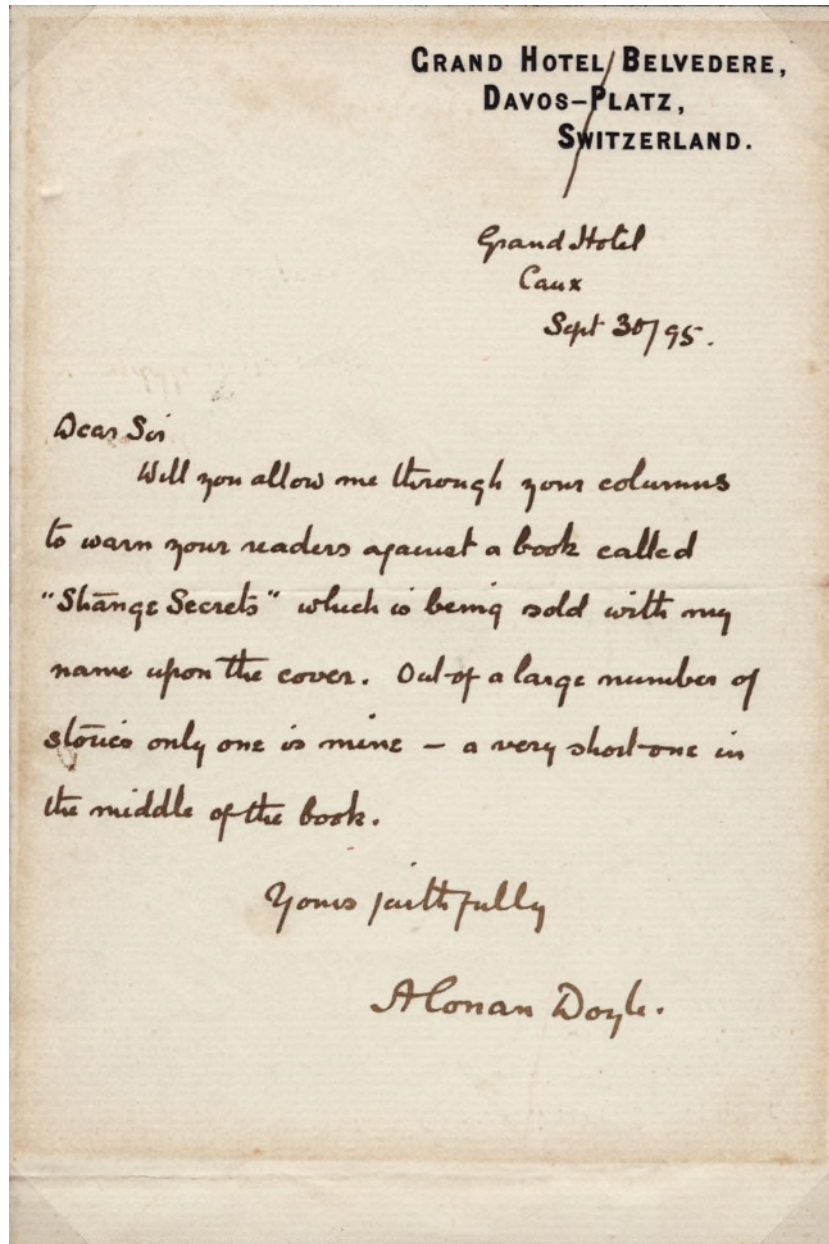 GRAND HOTEL BELVEDERE,
DAVOS–PLATZ,
SWITZERLAND.
Grand Hotel
Caux
Sept 30/95.
Dear Sir
Will you allow me through your columns
to warn your readers against a book called
"Strange Secrets" which is being sold with my
name upon the cover. Out of a large number of
stories only one is mine – a very short one in
the middle of the book.
Yours faithfully
A Conan Doyle.